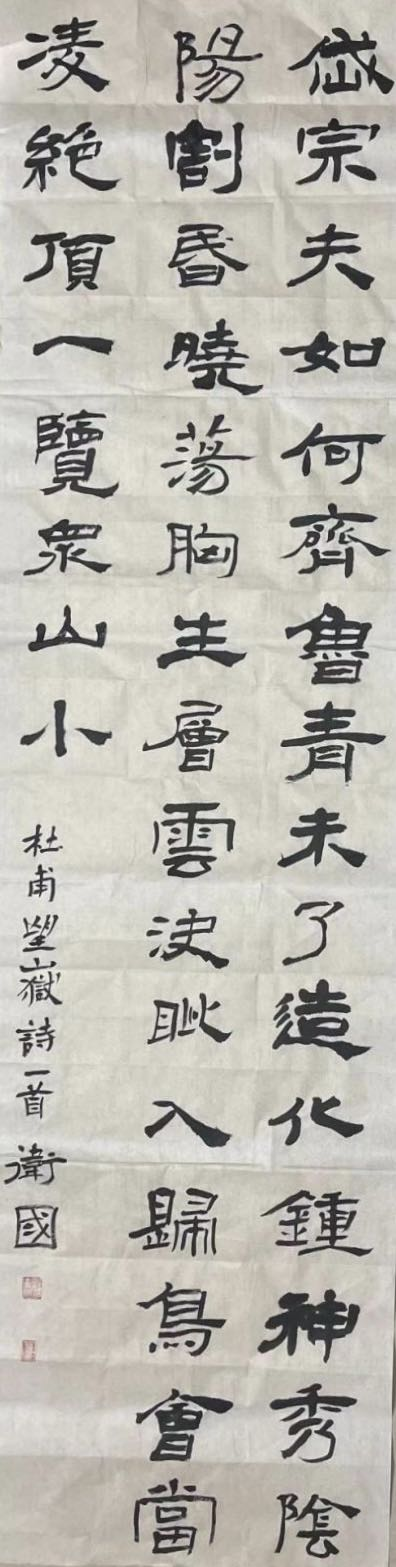 岱宗夫如何齊魯青未了造化鍾神秀陰
陽割昏曉蕩胸生層雲決眦入歸鳥會當
凌絕頂一覽眾山小
杜甫望嶽詩一首衛國